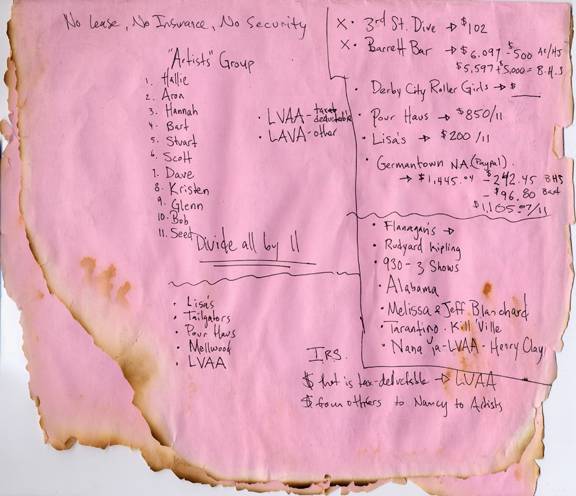 No Lease, No Insurance, No Security
"Artists" Group
1. Hallie
2. Aron
3. Hannah
4. Bart
5. Stuart
6. Scott
7. Dave
8. Kristen
9. Glenn
10. Bob
11. Seed
• LVAA - tax deductable
• LAVA - other
Divide all by 11
• Lisa's
• Tailgators
• Pour Haus
• Mellwood
• LVAA
X • 3rd St. Dive → $102
X • Barrett Bar → $6,097 - $500
$5,597 + $5,000 = B.H.S
• Derby City Roller Girls → $
• Pour Haus → $850/11
• Lisa's → $200/11
• Germantown NA (Paypal)
→ $1,445.04 - $242.45 BHS
- $96.80 Bart
$1,105.07/11
• Flanagan's →
• Rudyard Kipling
• 930 - 3 Shows
• Alabama
• Melissa & Jeff Blanchard
• Tarantino - Kill Ville
• Nana Ya - LVAA - Henry Clay
IRS.
$ that is tax-deductable → LVAA
$ from others to Nancy to Artists